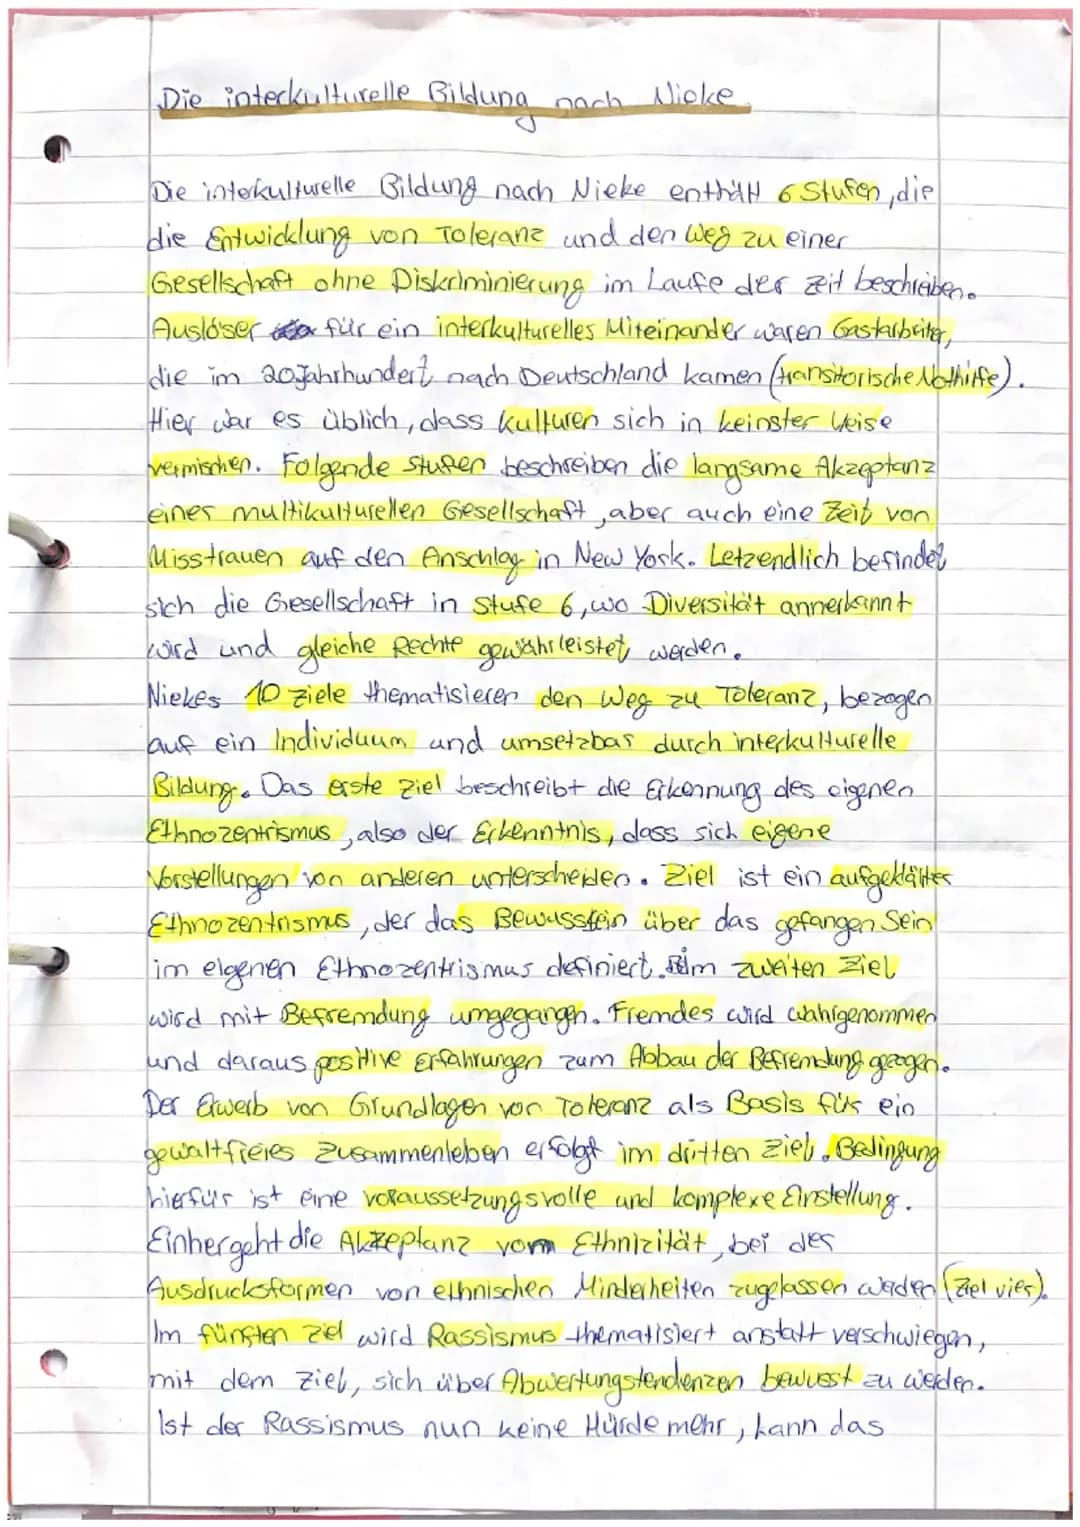 Die interkulturelle Bildung nach Nieke
Die interkulturelle Bildung nach Nieke enthält 6 Stufen, die
die Entwicklung von Toleranz und den Weg zu einer
Gesellschaft ohne Diskriminierung im Laufe der Zeit beschreiben.
Auslöser für ein interkulturelles Miteinander waren Gastarbeiter,
die im 20 Jahrhundert nach Deutschland kamen (transitorische Nothilfe).
Hier war es üblich, dass Kulturen sich in keinster Weise
vermischen. Folgende Stufen beschreiben die langsame Akzeptanz
einer multikulturellen Gesellschaft, aber auch eine Zeit von
Misstrauen auf den Anschlag in New York. Letzendlich befindet
sich die Gesellschaft in Stufe 6, wo Diversität annerkannt
wird und gleiche Rechte gewährleistet werden.
Niekes 10 Ziele thematisieren den Weg zu Toleranz, bezogen
auf ein Individuum und umsetzbar durch interkulturelle
Bildung. Das erste Ziel beschreibt die Erkennung des eigenen
Ethnozentrismus, also der Erkenntnis, dass sich eigene
Vorstellungen von anderen unterscheiden. Ziel ist ein aufgeklärter
Ethnozentrismus, der das Bewusstein über das gefangen Sein
im eigenen Ethnozentrismus definiert. Im zweiten Ziel
wird mit Befremdung umgegangen. Fremdes wird wahrgenommen
und daraus positive Erfahrungen zum Abbau der Befremdung gezogen.
Der Erwerb von Grundlagen von Toleranz als Basis für ein
gewaltfreies Zusammenleben erfolgt im dritten Ziel. Bedingung
hierfür ist eine voraussetzungsvolle und komplexe Einstellung.
Einhergeht die Akzeptanz vom Ethnizität, bei der
Ausdrucksformen von ethnischen Minderheiten zugelassen werden (Ziel vier).
Im fünften Ziel wird Rassismus thematisiert anstatt verschwiegen,
mit dem Ziel, sich über Abwertungstendenzen bewusst zu werden.
Ist der Rassismus nun keine Hürde mehr, kann das